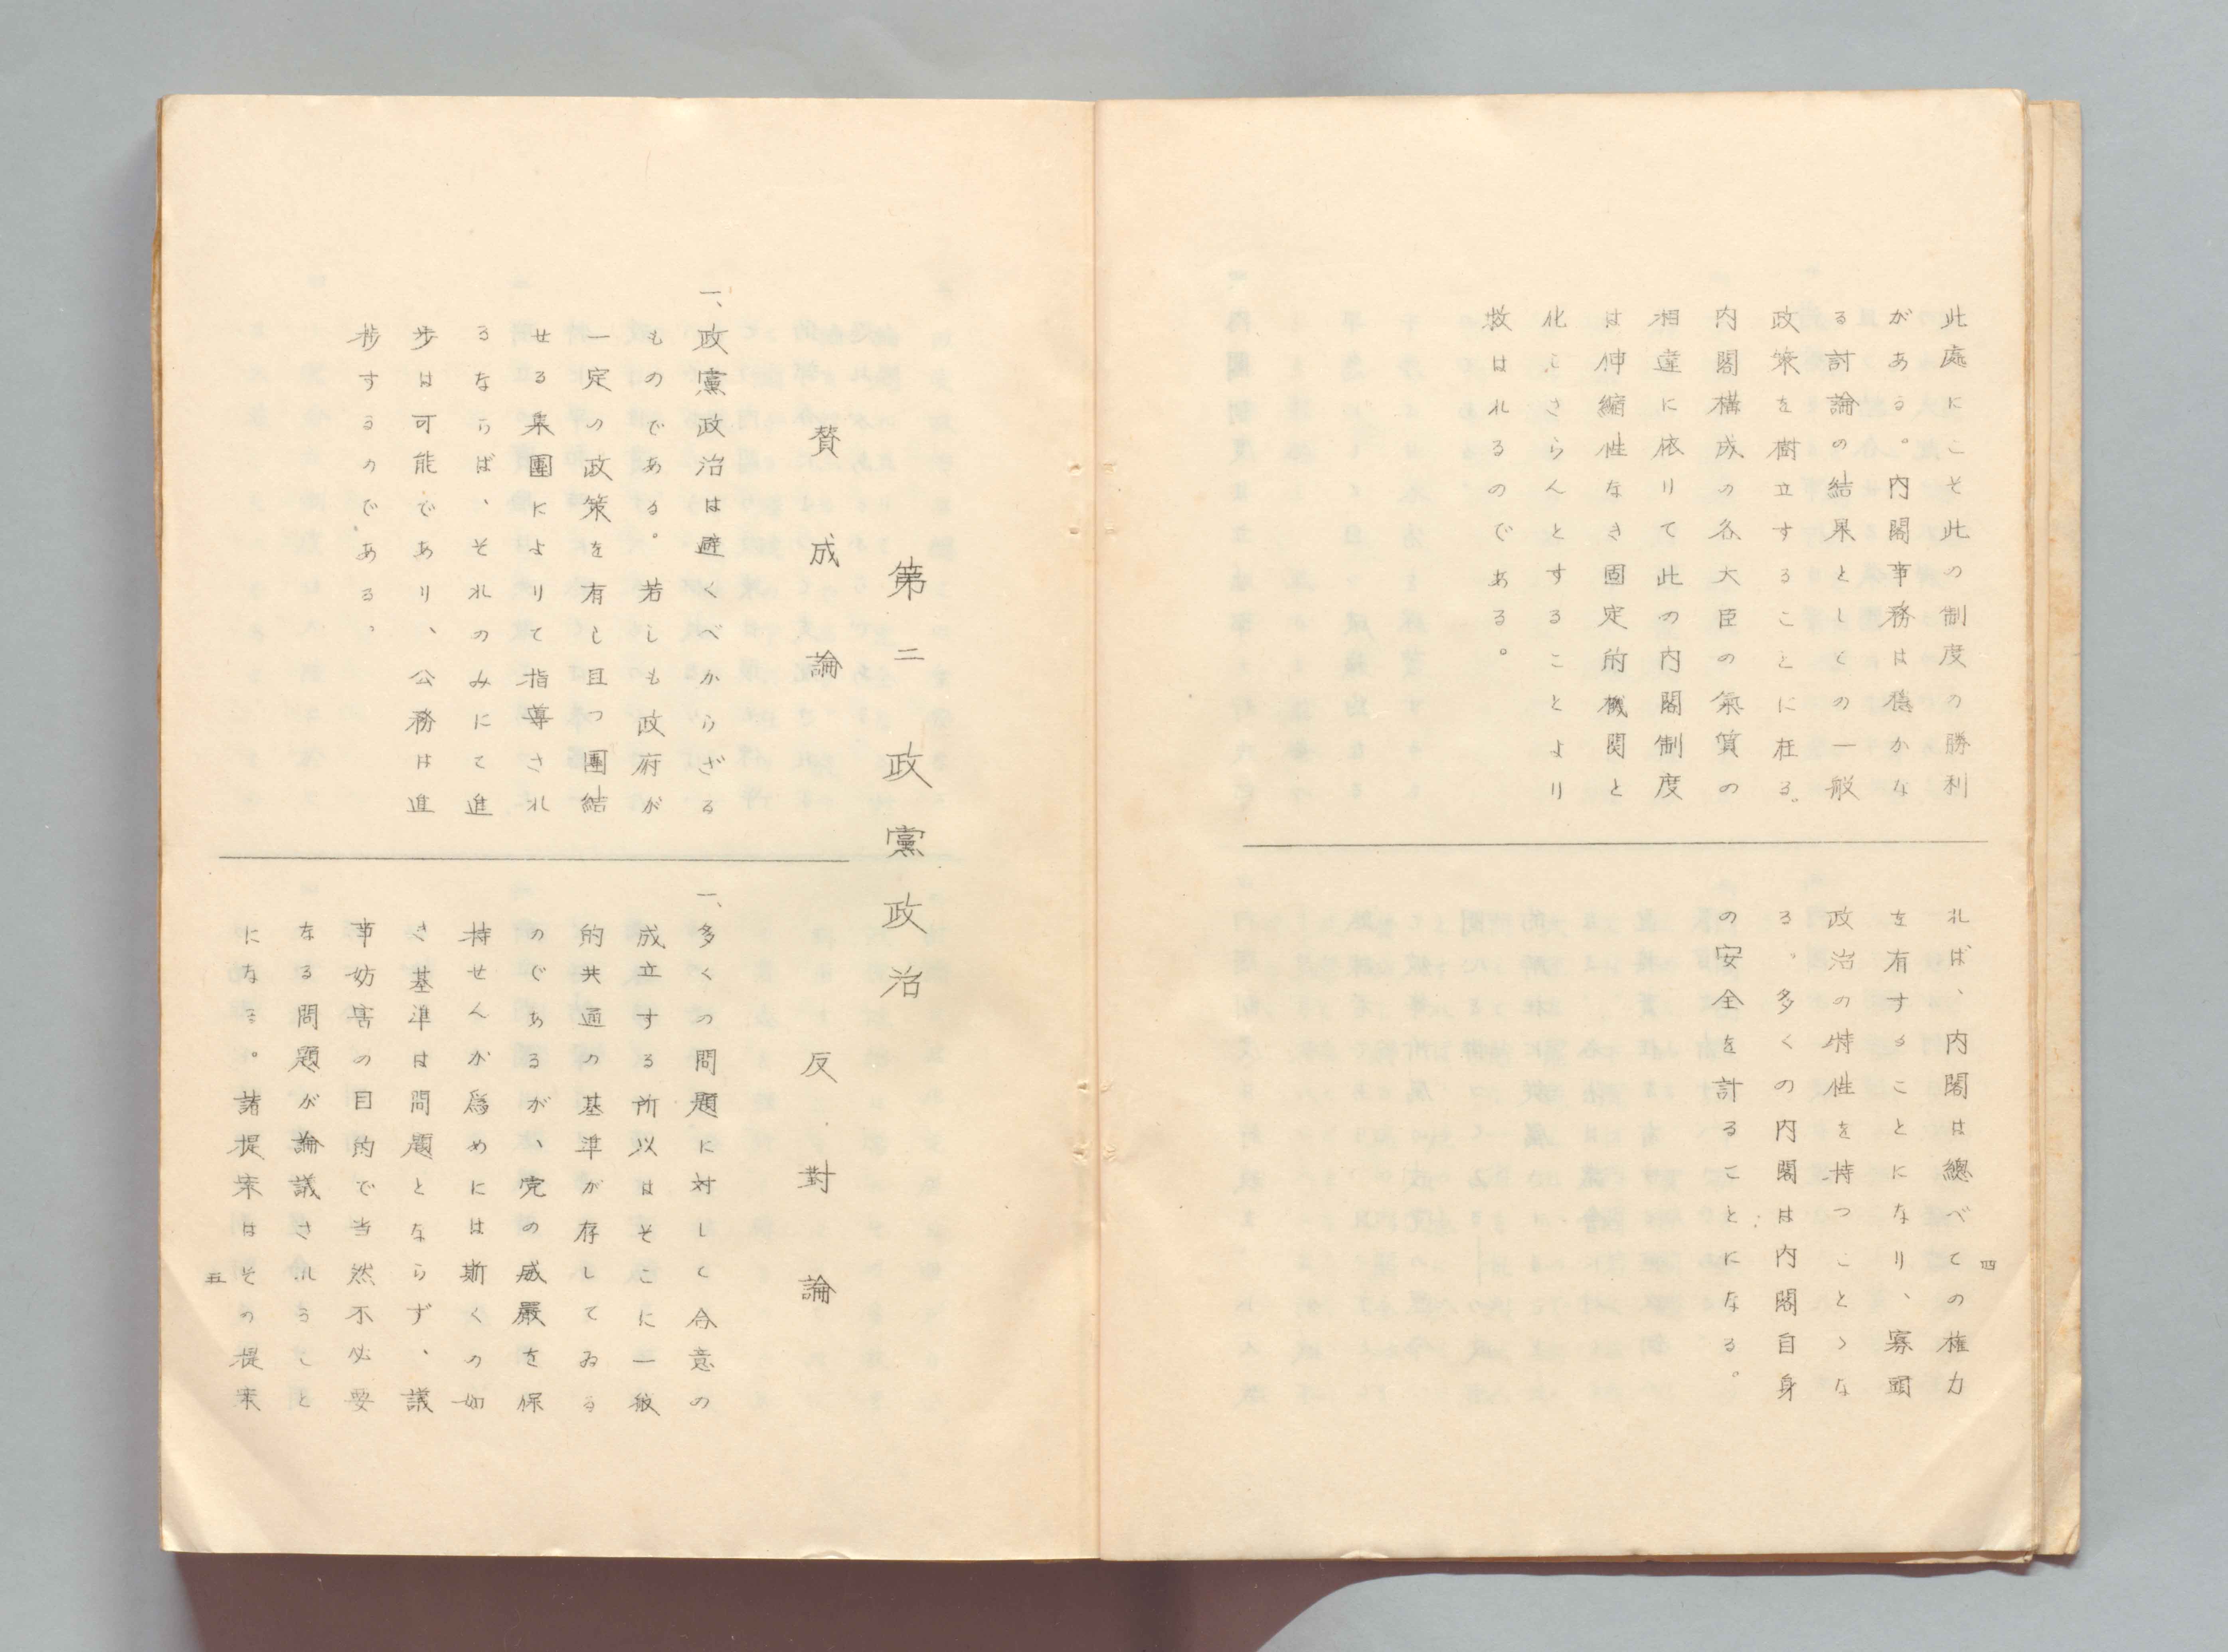 此處にこそ此の制度の勝利
がある。内閣事務は穏かな
る討論の結果としての一般
政策を樹立することに在る。
内閣構成の各大臣の氣質の
相違に依りて此の内閣制度
は伸縮性なき固定的機関と
化しさらんとすることより
救はれるのである。
れば、内閣は總べての権力
を有することになり、寡頭
政治の特性を持つことゝな
る。多くの内閣は内閣自身
の安全を計ることになる。
四
第二 政黨政治
賛成論
一、政黨政治は避くべからざる
ものである。若しも政府が
一定の政策を有し且つ團結
せる集團によりて指導され
るならば、それのみにて進
歩は可能であり、公務は進
捗するのである。
反對論
一、多くの問題に対して合意の
成立する所以はそこに一般
的共通の基準が存してゐる
のであるが、党の威嚴を保
持せんが爲めには斯くの如
き基準は問題とならず、議
事妨害の目的で当然不必要
なる問題が論議さるゝこと
になる。諸提案はその提案
五